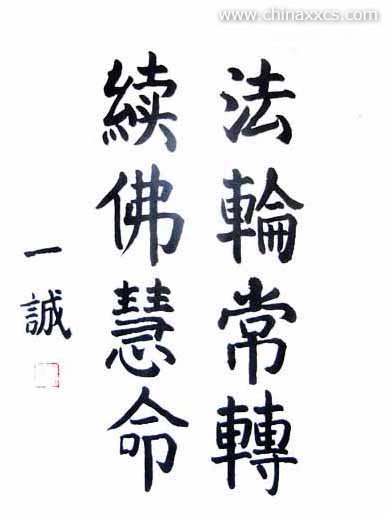 www.chinaxxcs.com
法輪常轉
続佛慧命
一誠